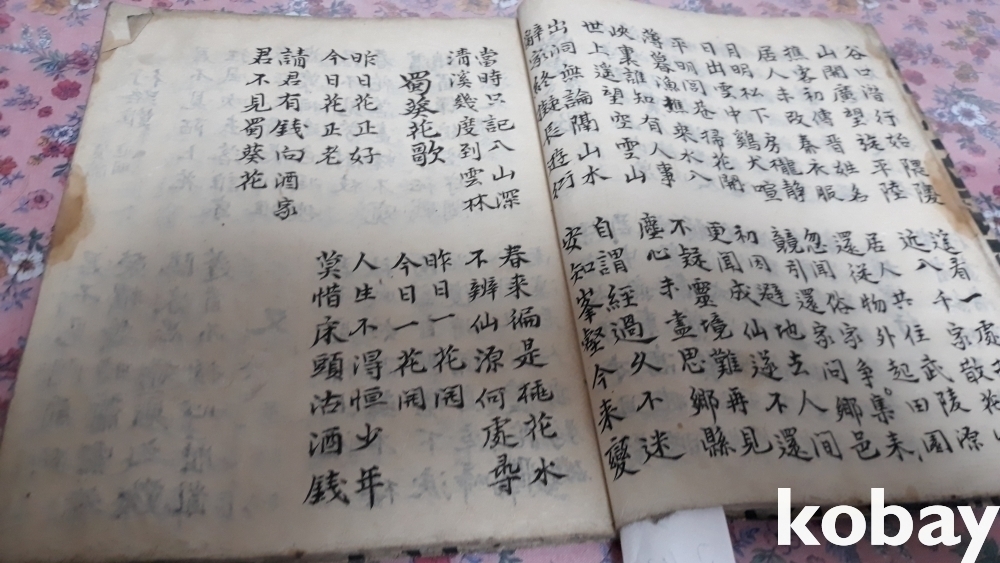 谷口潛行始隈隩
山開廣望旋平陸
遠看一處
近入千家散花
樵客初傳晉姓名
居人未改秦衣服
居人共住武陵源
還從物外起田園
月明松下房櫳靜
日出雲中鷄犬喧
忽聞俗家爭來集
競引還家問鄉邑
平明閭巷掃花開
薄暮漁樵乘水入
初因避地去人間
更聞成仙遂不還
峽裏誰知有人事
世上遙望空雲山
不疑靈境難再見
塵心未盡思鄉縣
出洞無論隔山水
辭家終擬長遊衍
自謂經過久不迷
安知峯壑今來變
當時只記入山深
清溪幾度到雲林
春來徧是桃花水
不辨仙源何處尋
蜀葵花歌
昨日花正好
今日花正老
昨日一花開
今日一花開
請君有錢向酒家
君不見蜀葵花
人生不得恒少年
莫惜床頭沽酒錢
kobay